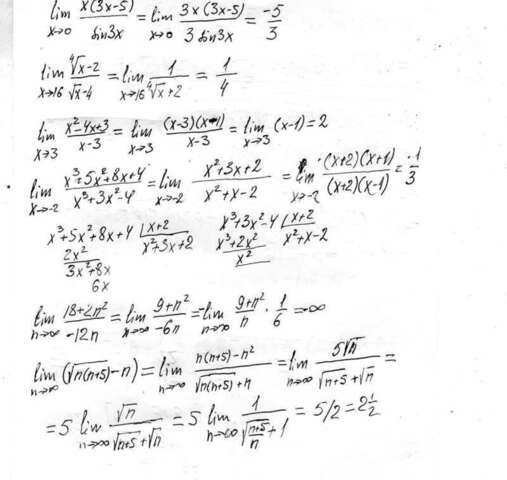 lim x→0 x(3x-5)/sin3x = lim x→0 3x(3x-5)/3 sin3x = -5/3
lim x→16 (⁴√x-2)/(√x-4) = lim x→16 1/(⁴√x+2) = 1/4
lim x→3 (x²-4x+3)/(x-3) = lim x→3 (x-3)(x-1)/(x-3) = lim x→3 (x-1) = 2
lim x→-2 (x³+5x²+8x+4)/(x³+3x²-4) = lim x→-2 (x²+3x+2)/(x²+x-2) = lim x→-2 (x+2)(x+1)/(x+2)(x-1) = 1/3
x³+5x²+8x+4 | x+2 x³+3x²-4 | x+2
2x² x²+3x+2 x³+2x² x²+x-2
3x²+8x x²
6x
lim n→∞ (18+2n²)/(-12n) = lim n→∞ (9+n²)/(-6n) = -lim n→∞ (9+n²)/n · 1/6 = -∞
lim n→∞ (√n(n+5) - n) = lim n→∞ (n(n+5)-n²)/(√n(n+5)+n) = lim n→∞ 5√n/(√n+5+√n) =
= 5 lim n→∞ √n/(√n+5+√n) = 5 lim n→∞ 1/(√(n+5)/n+1) = 5/2 = 2 1/2